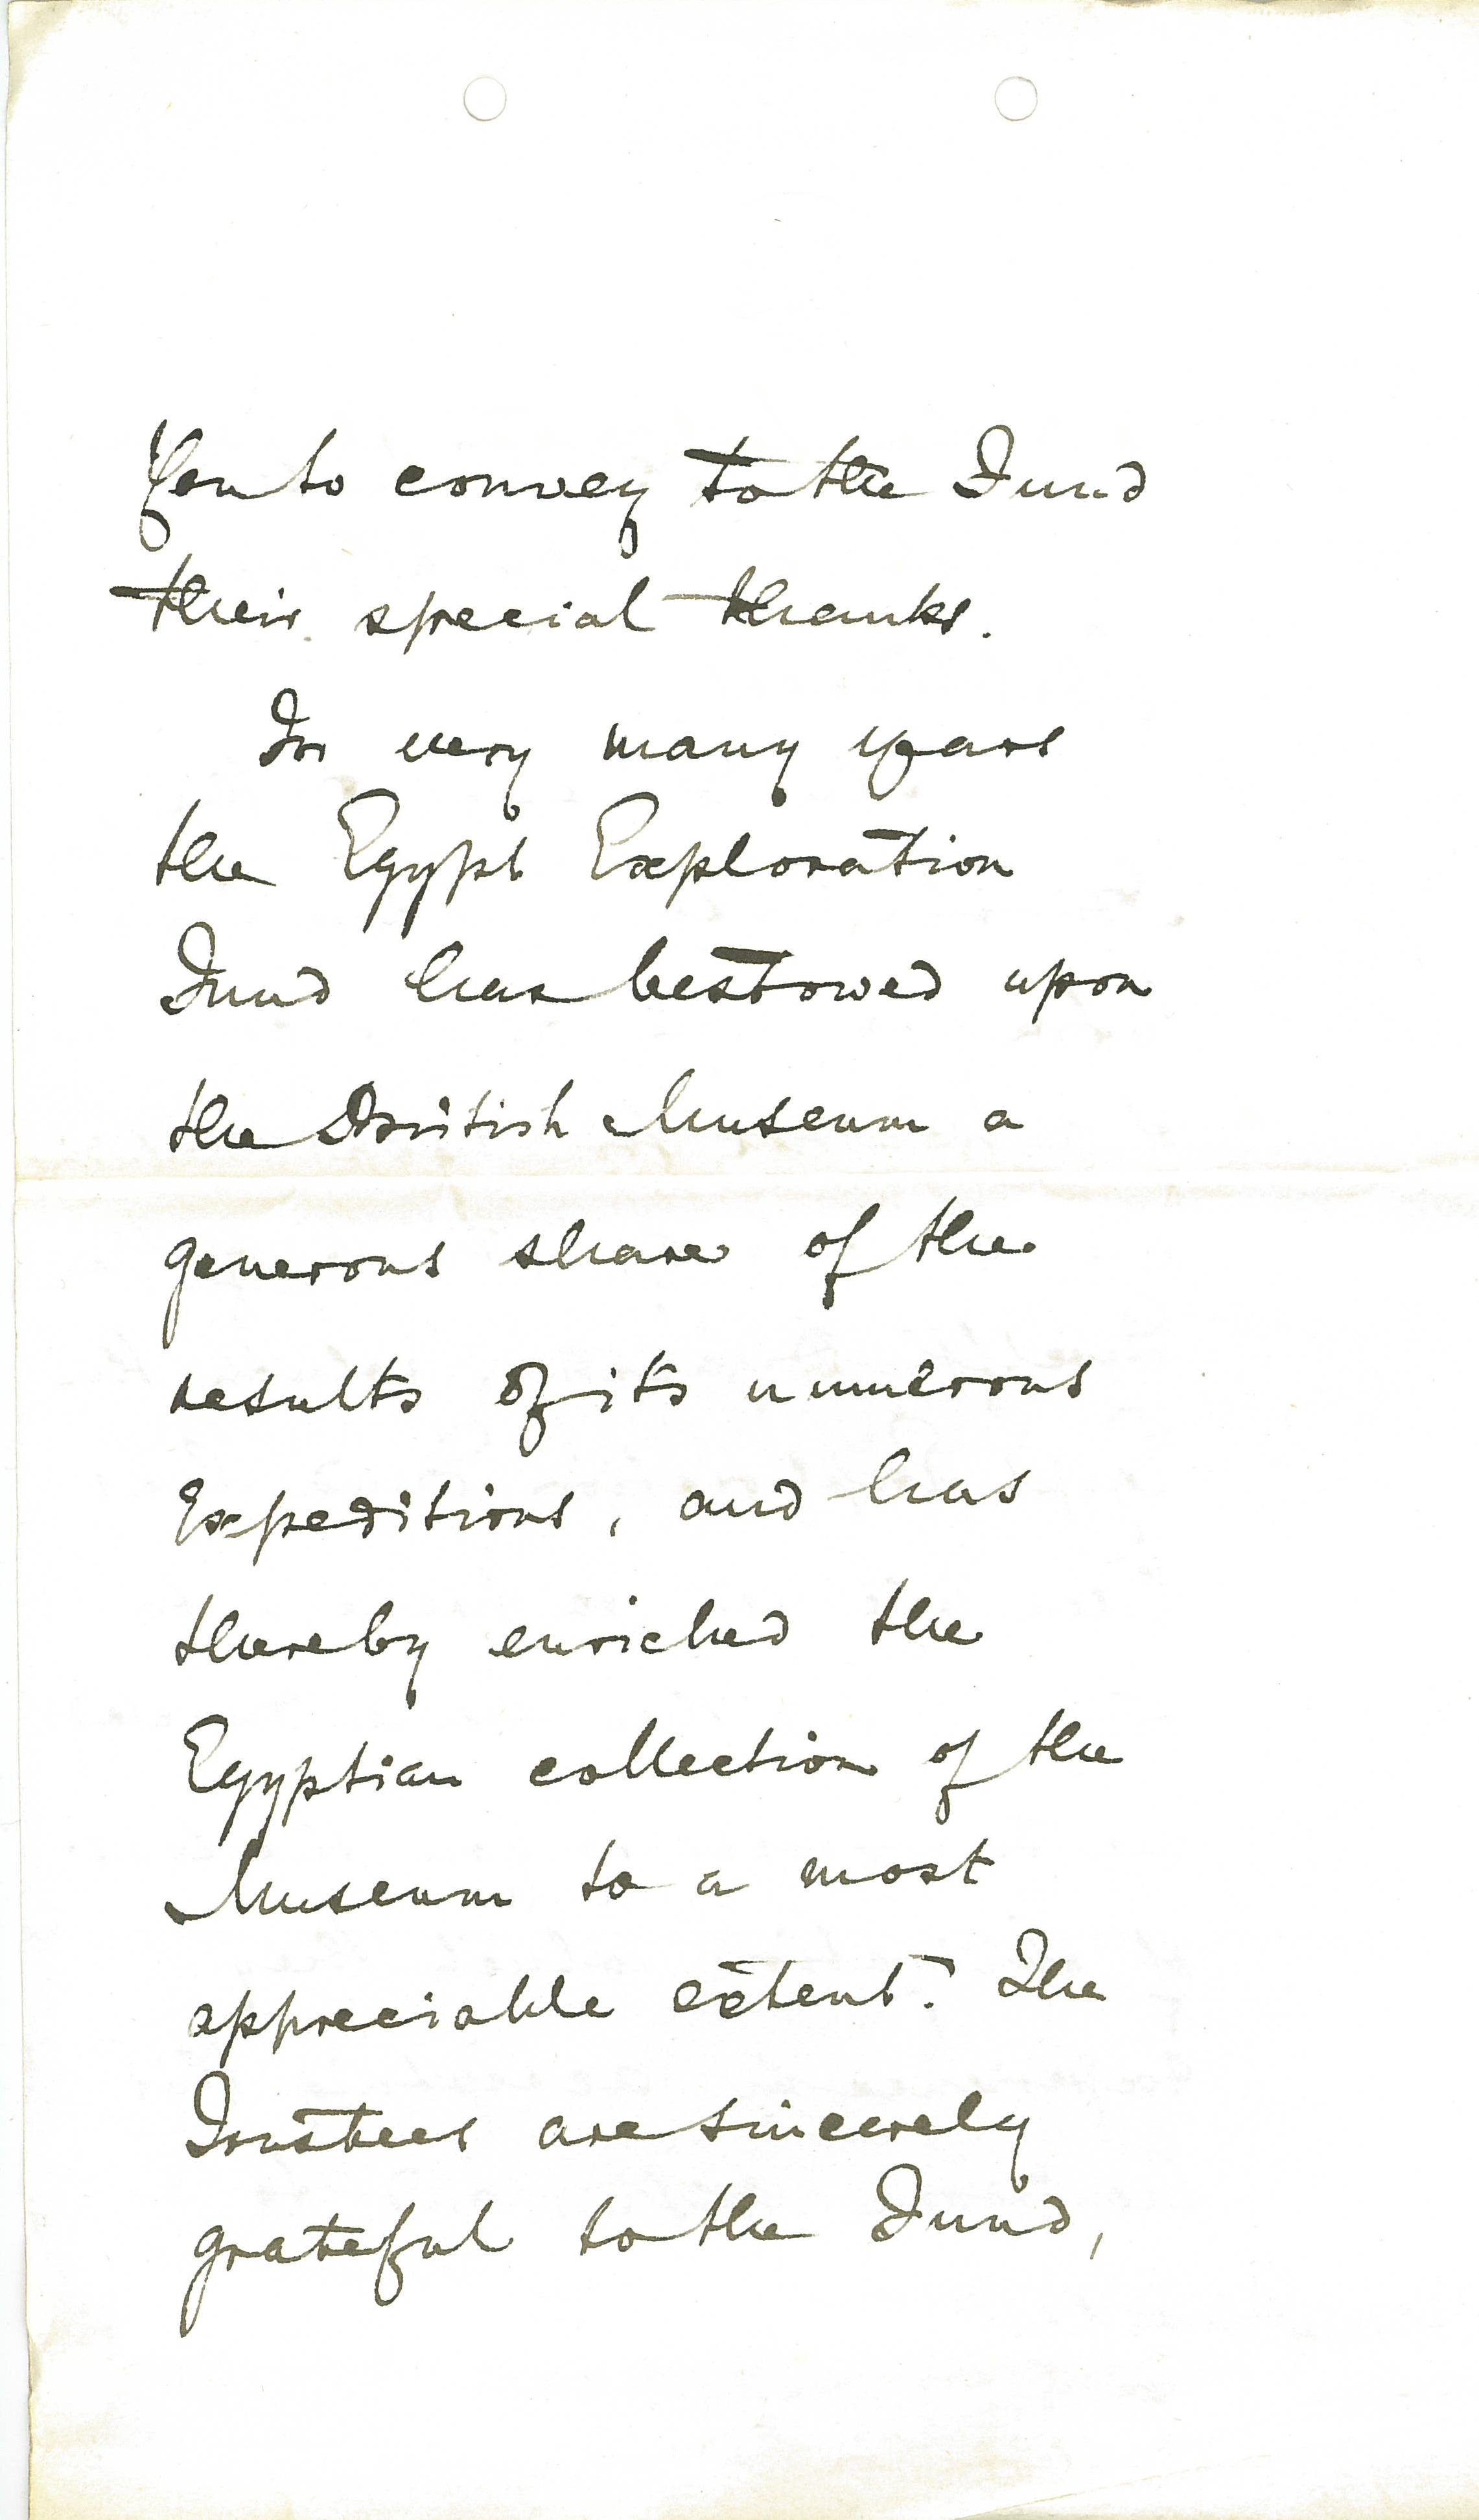 You to convey to the Fund
their special thanks.
For very many years
the Egypt Exploration
Fund has bestowed upon
the British Museum a
generous share of the
results of its numerous
Expeditions, and has
thereby enriched the
Egyptian collection of the
Museum to a most
appreciable extent. The
Trustees are sincerely
grateful to the Fund,